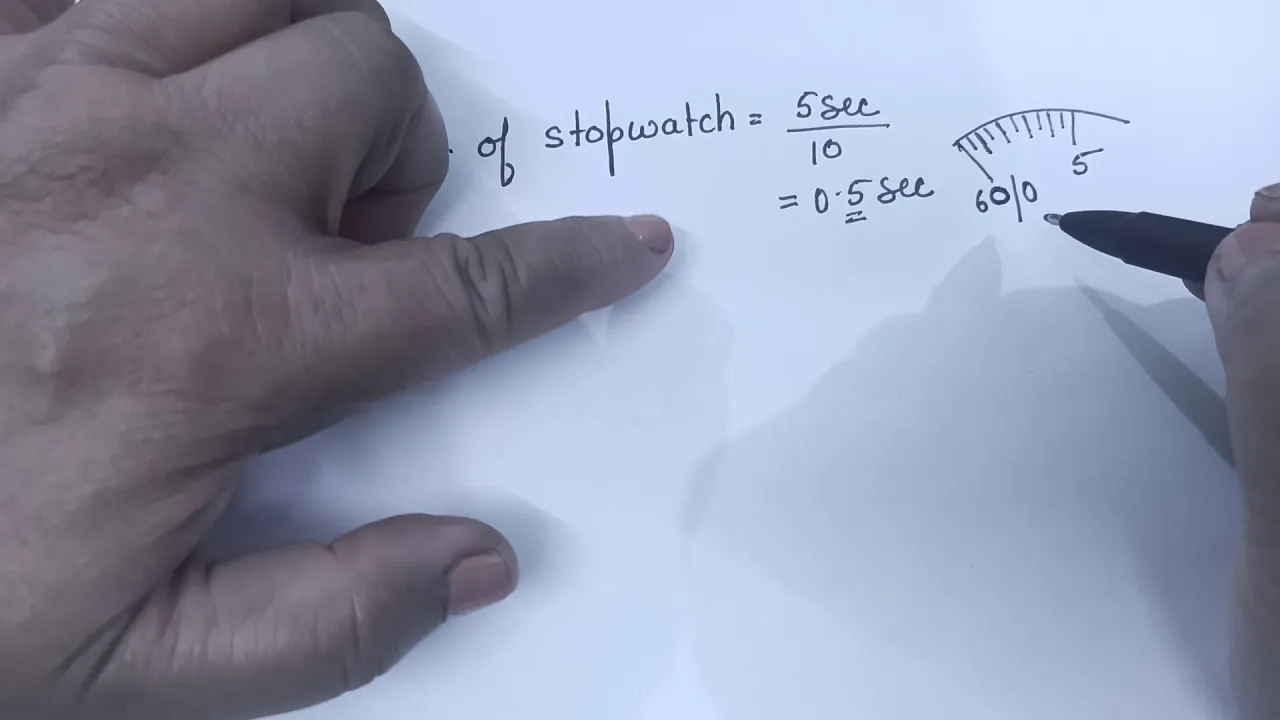 . of stopwatch = 5 sec / 10
= 0.5 sec
5
60|0